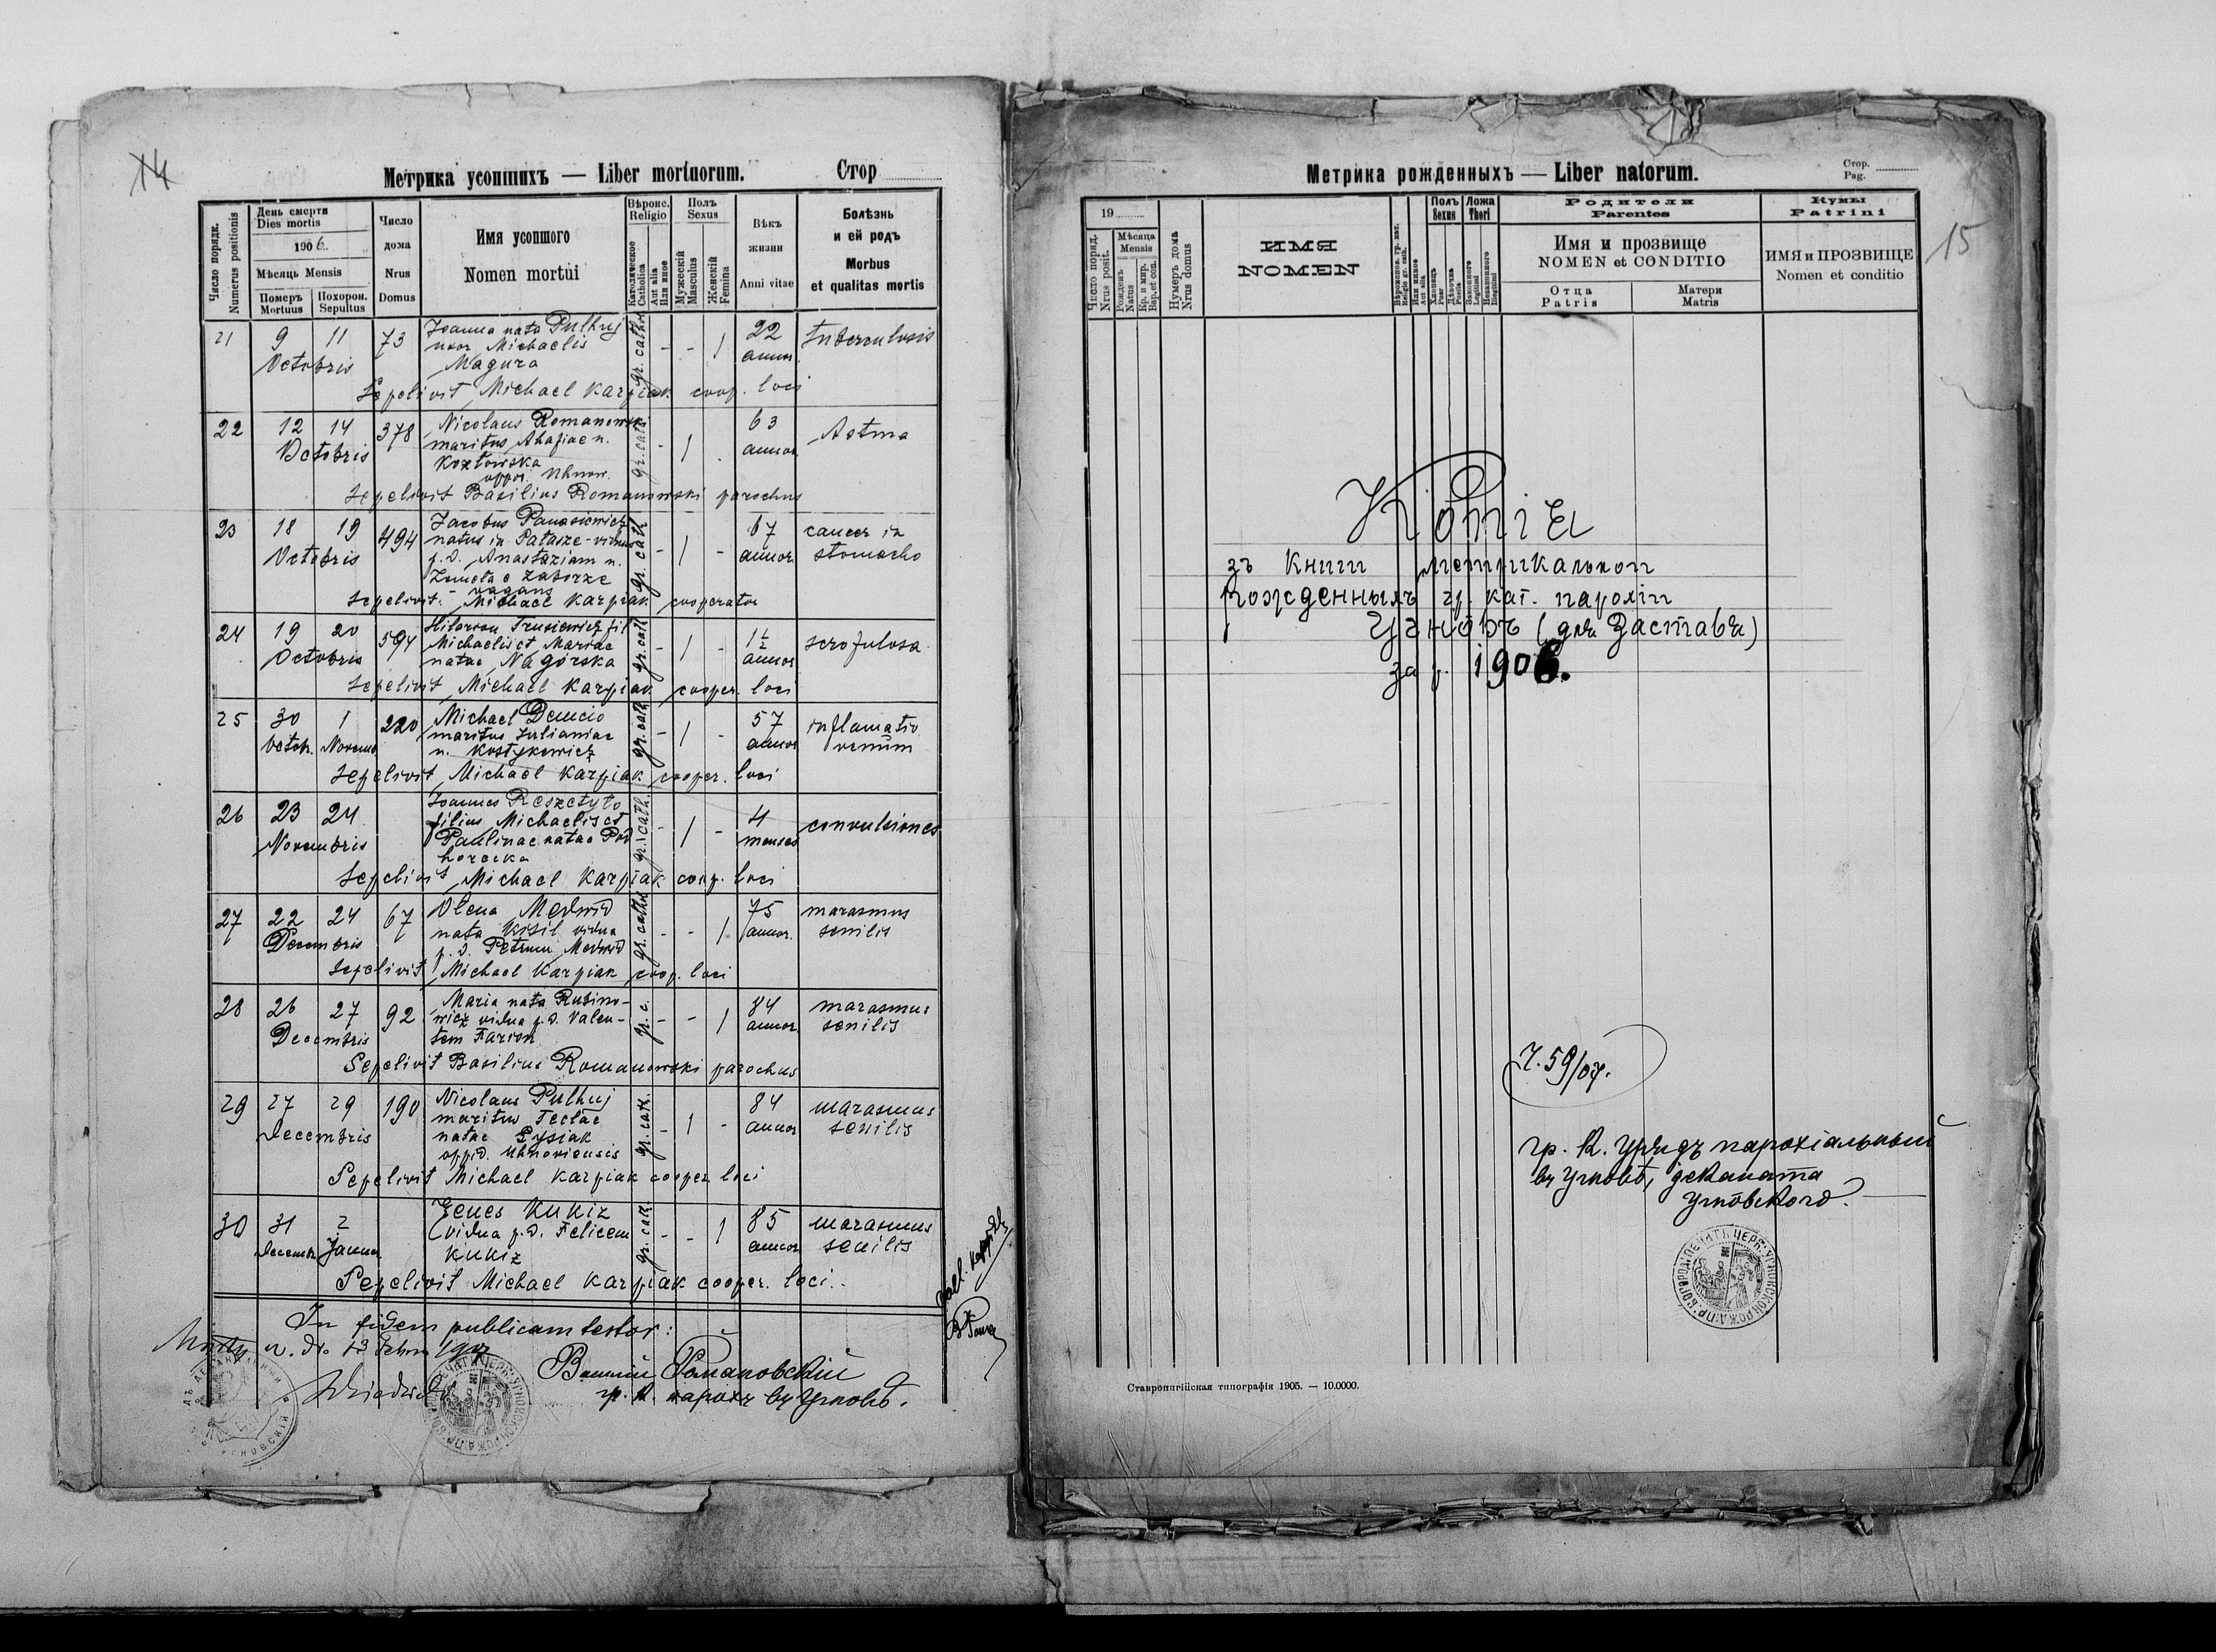 14
Метрика усопшихъ — Liber mortuorum. Стор
Число порядк. Numerus positionis
День смерти Dies mortis
1906
Мѣсяць Mensis
Померъ Mortuus
Похорон. Sepultus
Число дома Nrus Domus
Имя усопшого Nomen mortui
Вѣроис. Religio
Католическое Catholica
Aut alia Или иное
Полъ Sexus
Мужескій Masculus
Женскій Femina
Вѣкъ жизни Anni vitae
Болѣзнь и ей родъ Morbus et qualitas mortis
21 9 11 73 Joanna nata Pulhuj gr. cath. - - 1 22 tuberculosis
Octobris uxor Michaelis annor.
Magura
Sepelivit Michael Karpiak coop. loci
22 12 14 378 Nicolaus Romanowski gr. cath. - 1 - 63 Astma
Octobris maritus Ahafiae n. annor.
Kozłowska
oppi. Uhnow.
Sepelivit Basilius Romanowski parochus
23 18 19 494 Jacobus Panasiewicz gr. cath. - 1 - 67 cancer in
Octobris natus in Patasze - viduus annor. stomacho
p. d. Anastaziam n.
e Zaborze
- vagans
Sepelivit. Michael Karpiak cooperator
24 19 20 594 Hilarion Trusiewicz fil gr. cath. - 1 - 1½ scrofulosa
Octobris Michaelis et Mariae annor
natae Nagórska
Sepelivit Michael Karpiak cooper. loci
25 30 1 220 Michael Demcio gr. cath. - 1 - 57 inflamatio
Octob. Novem maritus Julianiae annor renum
n. Kostykewicz
Sepelivit Michael Karpiak cooper. loci
26 23 24 Joannes Reszetyło gr. cath. - 1 - 4 convulsiones
Novembris filius Michaelis et menses
Paulinae natae Pod
horecka
Sepelivit Michael Karpiak coop. loci
27 22 24 67 Olena Medwid gr. cath. - - 1 75 marasmus
Decembris nata Kisil vidua annor. senilis
p. d. Petrum Medwid
Sepelivit Michael Karpiak coop. loci
28 26 27 92 Maria nata Rubino- gr. c. - - 1 84 marasmus
Decembris wicz vidua p. d. Valen- annor senilis
tem Farion
Sepelivit Basilius Romanowski parochus
29 27 29 190 Nicolaus Pulhuj gr. cath. - 1 - 84 marasmus
Decembris maritus Teclae annor senilis
natae Pysiak
oppid. Uhnoviensis
Sepelivit Michael Karpiak cooper loci
30 31 2 Kukiz gr. cath. - - 1 85 marasmus
Decemb. Januar vidua p. d. Felicem annor senilis
Kukiz
Sepelivit Michael Karpiak cooper. loci.
In fidem publicam testor:
13 Febru 1907
Василій Романовскій
гр. к. парохъ въ Угновѣ.
15
Метрика рожденныхъ — Liber natorum.
Стор. Pag.
19
Число поряд. Nrus posit.
Мѣсяца Mensis
Рожденъ Natus
Кр. и мир. Bap. et con.
Нумеръ дома Nrus domus
ИМЯ NOMEN
Вѣроиспов. гр. кат. Religio gr. cath.
Или иное Aut alia
Полъ Sexus
Хлопець Puer
Дѣвочка Puella
Ложа Thori
Законного Legitimi
Незаконного Illegitimi
Родители Parentes
Имя и прозвище NOMEN et CONDITIO
Отца Patris
Матери Matris
Кумы Patrini
ИМЯ и ПРОЗВИЩЕ Nomen et conditio
Копія
зъ книги метрикальнои
рожденныхъ гр. кат. парохіи
Угнôвъ (для Заставья)
за р. 1906.
Ч. 59/07.
гр. к. Урядъ парохіальный
въ Угновѣ, деканата
Угнôвского.
Ставропигійская типографія 1905. — 10.0000.